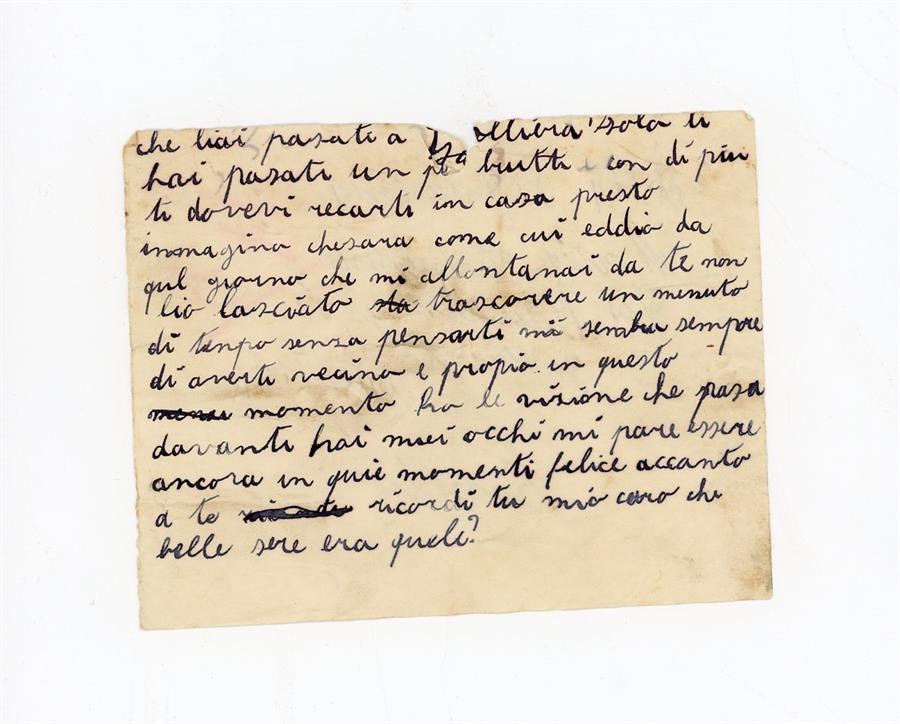 che liai pasati a sola ti
hai pasati un pò brutti e con di piu
ti dovevi recarti im casa presto
inmagino chesara come cui eddio da
qul giorno che mi allontanai da te non
lio lasciato sta trascorere un menuto
di tenpo senza pensarti mi sembra sempore
di averti vecino e propio in questo
momento ho le visione che pasa
davanti hai miei occhi mi pare essere
ancora in quie momenti felice accanto
a te ricordi tu mio caro che
belle sere era quele?